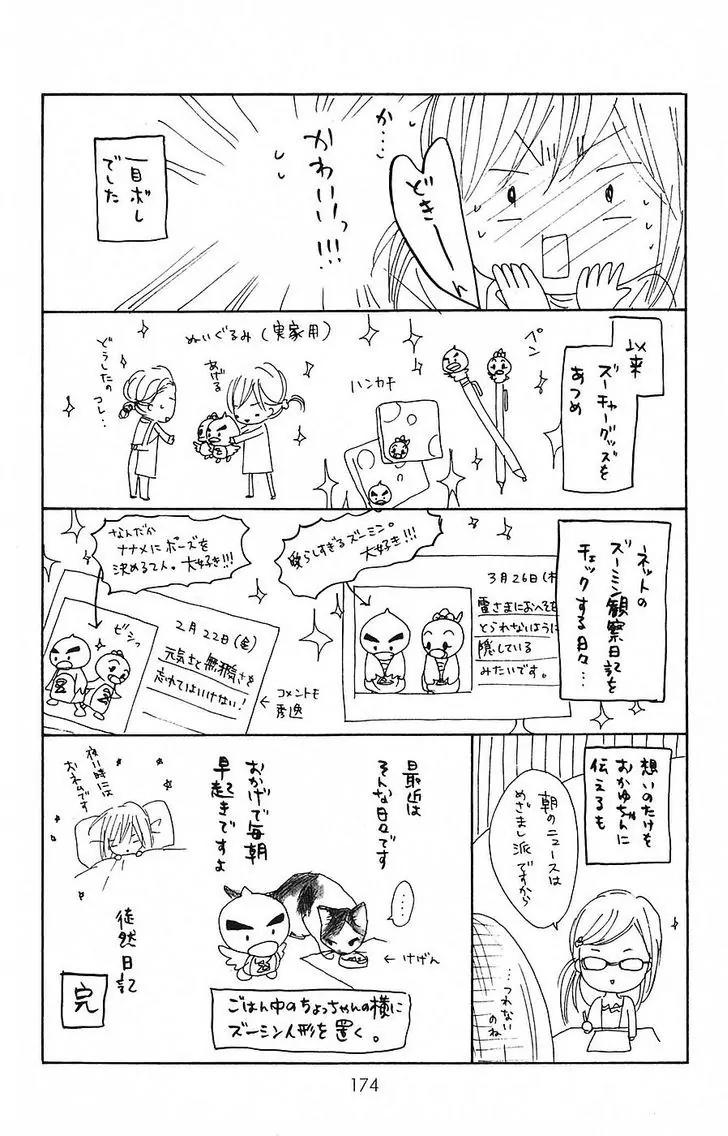 か…
かわいいっ!!!
どきーーん
一目ボレ
でした
以来
ズーチャーグッズを
あつめ
ペン
ハンカチ
ぬいぐるみ(実家用)
あげる
どうしたの
コレ…
ネットの
ズーミン観察日記を
チェックする日々…
愛らしすぎるズーミン。
大好き!!!
3月26日(木
雷さまにおへそを
とられないように
隠している
みたいです。
なんだか
ナナメにポーズを
決める2人。大好き!!!
ビシっ
2月22日(金)
元気さと無邪気さを
忘れてはいけない!
←コメントも
秀逸
想いのたけを
おかゆちゃんに
伝えるも
朝のニュースは
めざまし派ですから
…つれない
のね
最近は
そんな日々です
おかげで毎朝
早起きですよ
……
←けげん
ごはん中のちょっちゃんの横に
ズーミン人形を置く。
夜い時には
おネムです
徒然日記
完
174